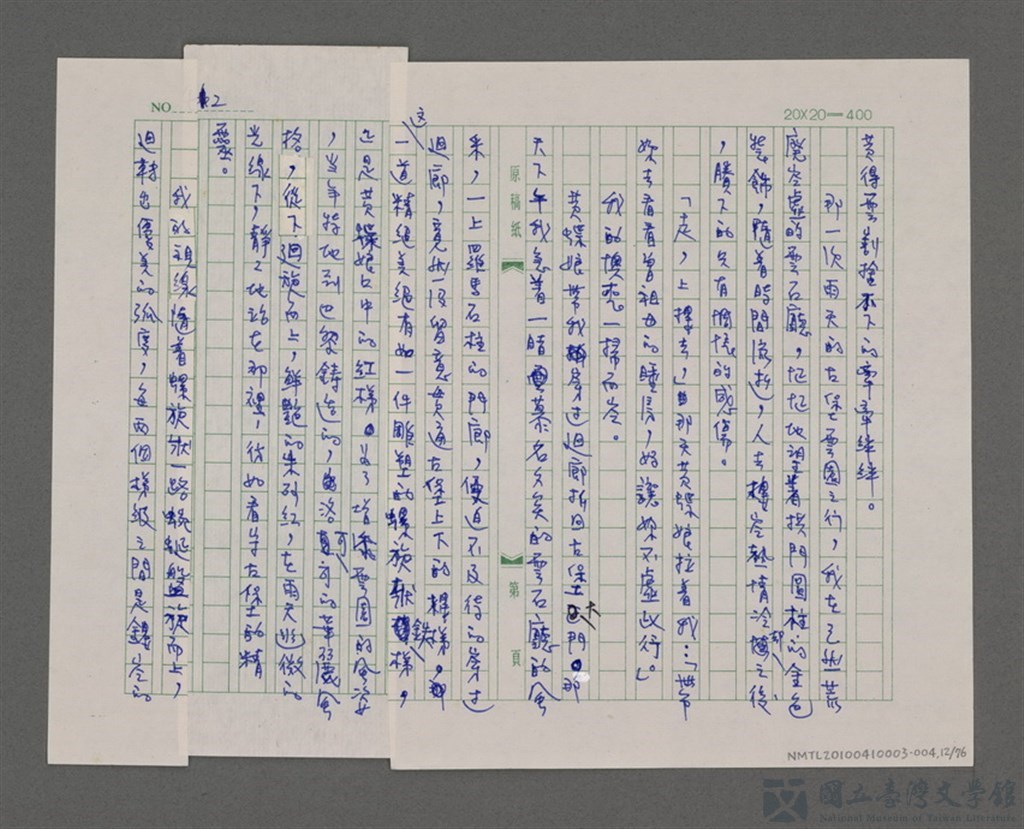 20X20=400
黃得雲割捨不下的牽牽絆絆。
那一次雨天的古堡雲園之行，我在已然荒
廢空虛的雲石廳，怔怔地望著拱門圓柱的金色
裝飾，隨著時間流逝，人去樓空熱情冷卻之後
，賸下的只有惆悵的感傷。
「走，上樓去，」那天黃蝶娘拉著我：「帶
妳去看看曾祖母的睡房，好讓妳不虛此行。」
我的惆悵一掃而空。
黃蝶娘帶我穿過迴廊折回古堡大門。那
天下午我急著一睹慕名久矣的雲石廳的風
原稿紙
第 頁
采，一上羅馬石柱的門廊，便迫不及待的穿過
迴廊，竟然沒留意貫通古堡上下的樓梯。那
這一道精緻美絕有如一件雕塑的螺旋狀鐵梯，
正是黃蝶娘口中的紅梯。為了增添雲園的風姿
，當年特地到巴黎鑄造的，洛可可的華麗風
格，從下迴旋而上，鮮艷的朱砂紅，在雨天熹微的
光線下，靜靜地站在那裡，彷如看守古堡的精
靈。
NO 12
我的視線隨著螺旋狀一路蜿蜒盤旋而上，
迴轉出優美的弧度，每兩個梯級之間是鏤空的
NMTL20100410003-004,12/76
國立臺灣文學館
National Museum of Taiwan Literature